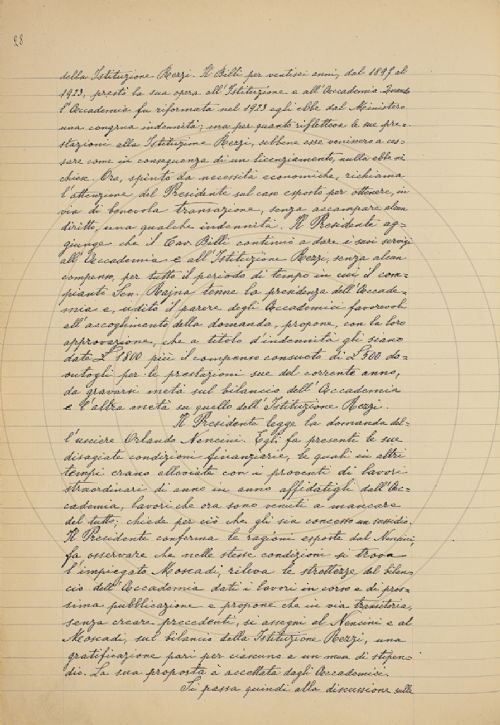 28
della Istituzione Rezzi. Il Billi per ventisei anni, dal 1897 al
1923, prestò la sua opera all'Istituzione e all'Accademia. Quando
l'Accademia fu riformata nel 1923 egli ebbe dal Ministero
una congrua indennità; ma per quanto riflettesse le sue pre-
stazioni alla Istituzione Rezzi, sebbene esse venissero a ces-
sare come in conseguenza di un licenziamento, nulla ebbe nè
chiese. Ora, spinto da necessità economiche, richiama
l'attenzione del Presidente sul caso esposto per ottenere, in
via di benevola transazione, senza accampare alcun
diritto, una qualche indennità. Il Presidente ag-
giunge che il Cav. Billi continuò a dare i suoi servigi
all'Accademia e all'Istituzione Rezzi, senza alcun
compenso, per tutto il periodo di tempo in cui il com-
pianto Sen. Rajna tenne la presidenza dell'Accade-
mia e, udito il parere degli Accademici favorevoli
all'accoglimento della domanda, propone, con la loro
approvazione, che a titolo d'indennità gli siano
date £ 1800 più il compenso consueto di £ 500 do-
vutogli per le prestazioni sue del corrente anno,
da gravarsi metà sul bilancio dell'Accademia
e l'altra metà su quello dell'Istituzione Rezzi.
Il Presidente legge la domanda del-
l'usciere Orlando Nencini. Egli fa presenti le sue
disagiate condizioni finanziarie, le quali in altri
tempi erano alleviate con i proventi di lavori
straordinari di anno in anno affidatigli dall'Ac-
cademia, lavori che ora sono venuti a mancare
del tutto; chiede per ciò che gli sia concesso un sussidio.
Il Presidente conferma le ragioni esposte dal Nencini,
fa osservare che nelle stesse condizioni si trova
l'impiegato Moscadi, rileva le strettezze del bilan-
cio dell'Accademia dati i lavori in corso e di pros-
sima pubblicazione e propone che in via transitoria,
senza creare precedenti, si assegni al Nencini e al
Moscadi, sul bilancio della Istituzione Rezzi, una
gratificazione pari per ciascuno a un mese di stipen-
dio. La sua proposta è accettata dagli Accademici.
Si passa quindi alla discussione sulla